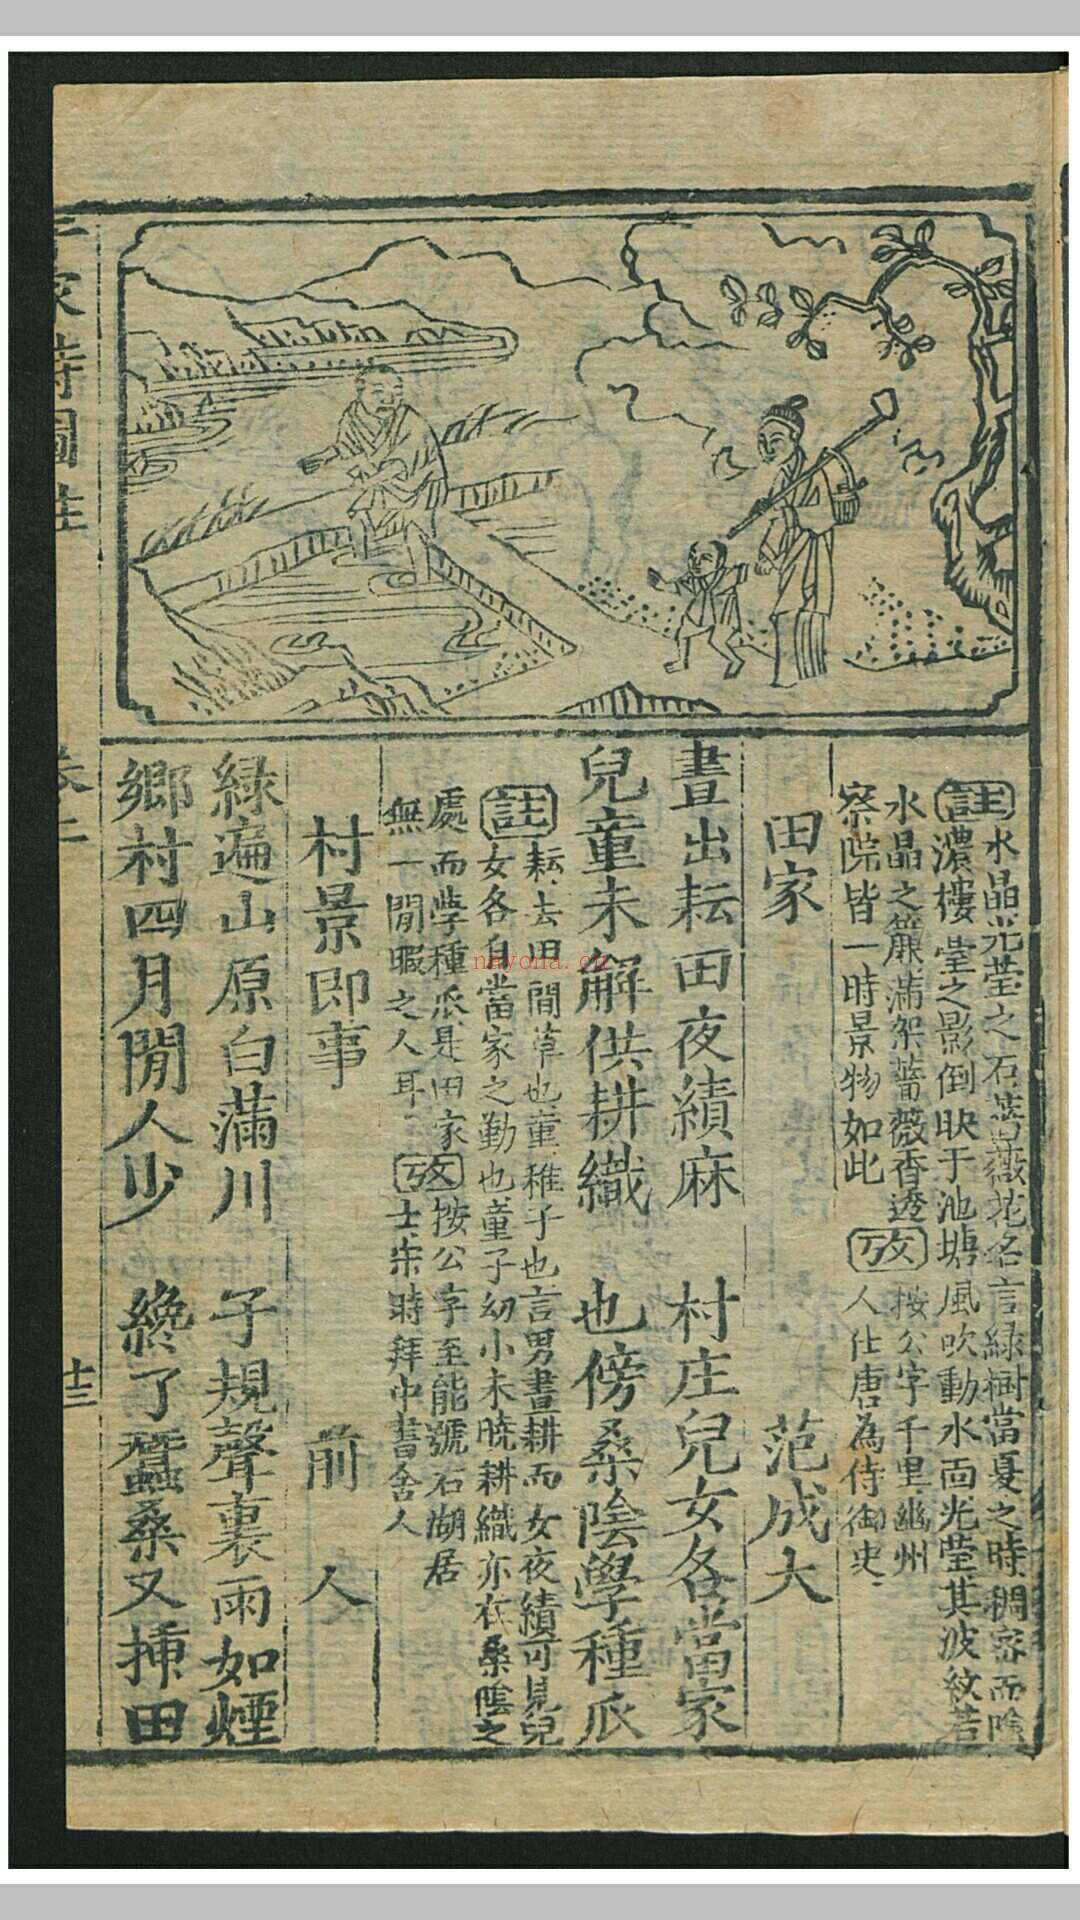 註水晶光瑩之石薔薇花名言綠樹當夏之時稠密而陰
濃樓臺之影倒映于池塘風吹動水面光瑩其波紋若
水晶之簾滿架薔薇香透
察院皆一時景物如此
攷按公字千里幽州
人仕唐為侍御史
田家 范成大
晝出耘田夜績麻 村庄兒女各當家
兒童未解供耕織 也傍桑陰學種瓜
註耘去田間草也童稚子也言男晝耕而女夜績可見兒
女各自當家之勤也童子幼小未曉耕織亦在桑陰之
處而學種瓜是田家
無一閒暇之人耳
攷按公字至能號石湖居
士宋時拜中書舍人
村景即事 前人
綠遍山原白滿川 子規聲裏雨如煙
鄉村四月閒人少 纔了蠶桑又挿田
千家詩圖註 卷二 十三
nayona.cn